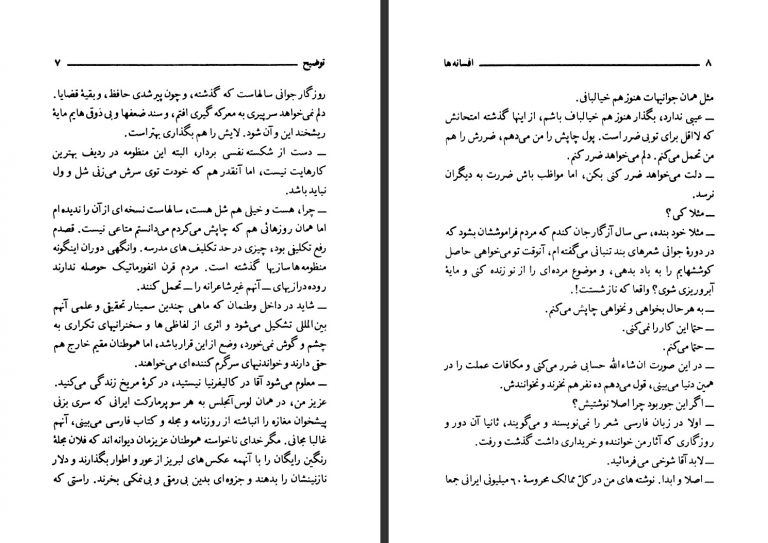 توضیح ۷
روزگار جوانی سالهاست که گذشته، و چون پیر شدی حافظ، و بقیهٔ قضایا.
دلم نمی‌خواهد سر پیری به معرکه گیری افتم، و سند ضعفها و بی ذوقی هایم مایهٔ
ریشخند این و آن شود. لایش را هم بگذاری بهتر است.
ــ دست از شکسته نفسی بردار، البته این منظومه در ردیف بهترین
کارهایت نیست، اما آنقدر هم که خودت توی سرش می‌زنی شل و ول
نباید باشد.
ــ چرا، هست و خیلی هم شل هست، سالهاست نسخه ای از آن را ندیده ام
اما همان روزهائی هم که چاپش می‌کردم می‌دانستم متاعی نیست. قصدم
رفع تکلیفی بود، چیزی در حد تکلیف های مدرسه. وانگهی دوران اینگونه
منظومه ها سازیها گذشته است. مردم قرن انفورماتیک حوصله ندارند
روده درازیهای ــ آنهم غیر شاعرانه را ــ تحمل کنند.
ــ شاید در داخل وطنمان که ماهی چندین سمینار تحقیقی و علمی آنهم
بین‌المللی تشکیل می‌شود و اثری از لفاظی ها و سخنرانیهای تکراری به
چشم و گوش نمی‌خورد، وضع از این قرار باشد، اما هموطنان مقیم خارج هم
حقی دارند و خواندنیهای سرگرم کننده ای می‌خواهند.
ــ معلوم می‌شود آقا در کالیفرنیا نیستید، در کرهٔ مریخ زندگی می‌کنید.
عزیز من، در همان لوس آنجلس به هر سوپرمارکت ایرانی که سری بزنی
پیشخوان مغازه را انباشته از روزنامه و مجله و کتاب فارسی می‌بینی، آنهم
غالبا مجانی. مگر خدای ناخواسته هموطنان عزیزمان دیوانه اند که فلان مجلهٔ
رنگین رایگان را با آنهمه عکس های لبریز از عور و اطوار بگذارند و دلار
نازنینشان را بدهند و جزوه ای بدین بی رمقی و بی نمکی بخرند. راستی که
۸ افسانه ها
مثل همان جوانیهات هنوز هم خیالبافی.
ــ عیبی ندارد، بگذار هنوز هم خیالباف باشم، از اینها گذشته امتحانش
که لااقل برای تو بی ضرر است. پول چاپش را من می‌دهم، ضررش را هم
من تحمل می‌کنم. دلم می‌خواهد ضرر کنم.
ــ دلت می‌خواهد ضرر کنی بکن، اما مواظب باش ضررت به دیگران
نرسد.
ــ مثلا کی؟
ــ مثلا خود بنده، سی سال آزگار جان کندم که مردم فراموششان بشود که
در دورهٔ جوانی شعرهای بند تنبانی می‌گفته ام، آنوقت تو می‌خواهی حاصل
کوششهایم را به باد بدهی، و موضوع مرده ای را از نو زنده کنی و مایهٔ
آبروریزی شوی؟ واقعا که ناز شستت!.
ــ به هر حال بخواهی و نخواهی چاپش می‌کنم.
ــ حتما این کار را نمی‌کنی.
ــ حتما می‌کنم.
ــ در این صورت ان شاءالله حسابی ضرر می‌کنی و مکافات عملت را در
همین دنیا می‌بینی، قول می‌دهم ده نفر هم نخرند و نخوانندش.
ــ اگر این جور بود چرا اصلا نوشتیش؟
ــ اولا در زبان فارسی شعر را نمی‌نویسند و می‌گویند، ثانیا آن دور و
روزگاری که آثار من خواننده و خریداری داشت گذشت و رفت.
ــ لابد آقا شوخی می‌فرمائید.
ــ اصلا و ابدا. نوشته های من در کلّ ممالک محروسهٔ ۶۰ میلیونی ایرانی جمعا